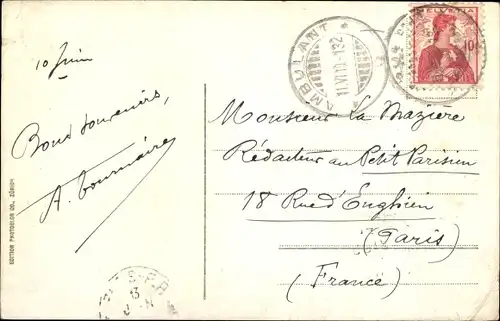 10 Juin
Bons souvenirs,
EDITION PHOTOGLOB CO., ZÜRICH
AMBULANT
11.VI.10-132
HELVETIA
10
Monsieur La Mazière
Rédacteur au Petit Parisien
18 Rue d'Enghien
(Paris)
(France)